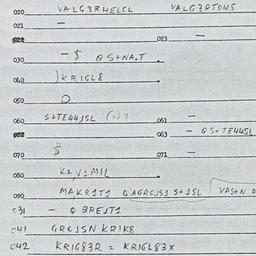 020 VALG3RHELCL VALG3RTONS
021 –
023 –
030 – $ QS+NA.T
040 )KRIGL8
050
060 S+TE44JSL 061 –
063 – QS+TE44SL
070 071 –
080 KA,V2MIL
090 MAKR1T1 QAGROJS1 S+1SL VAS+N
031 – Q BREJT1
041 GROJSN KR1K8
042 KRIG83R = KRIGL83X